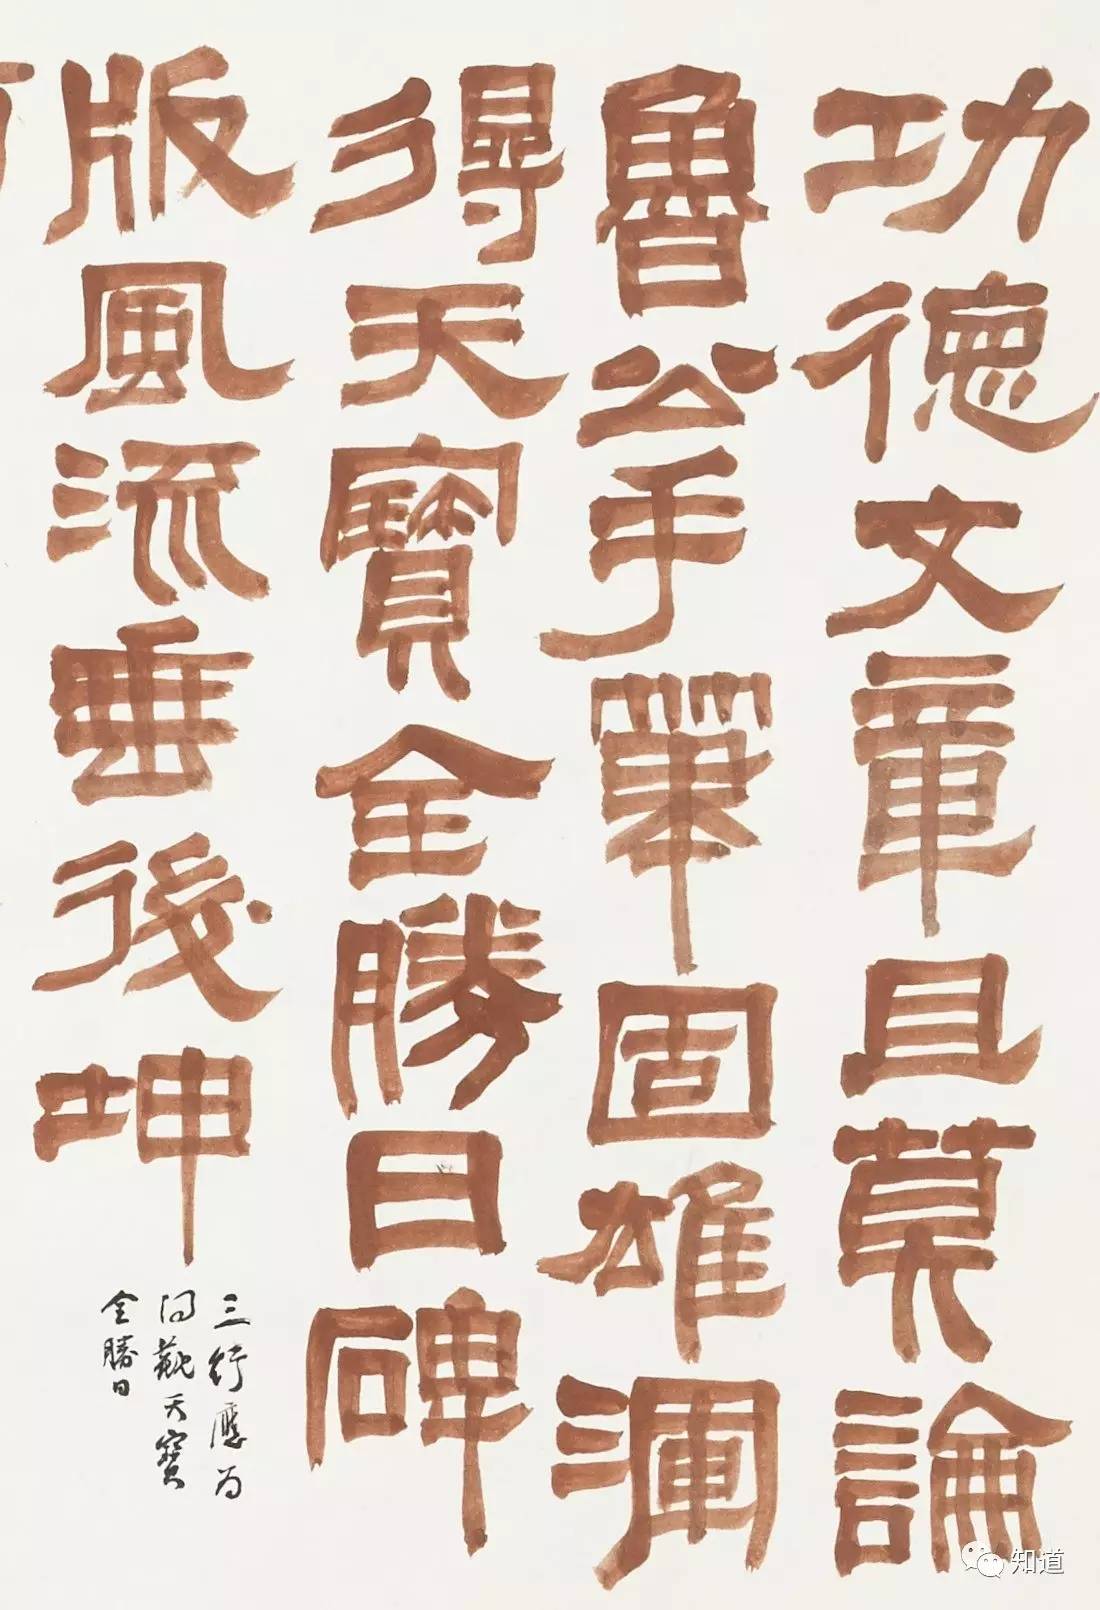 功德文章且莫論
魯公手筆固雄渾
得天寶全勝日碑
版風流垂後坤
三行應为
得觀天寶
全勝日
知道